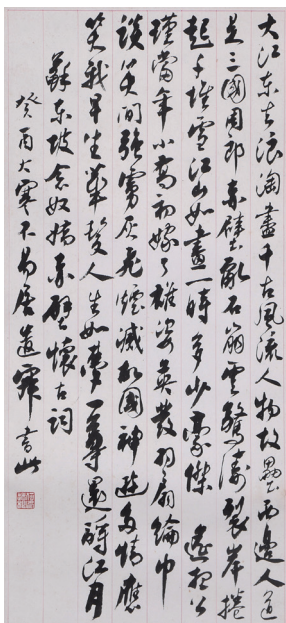 大江东去浪淘盡千古風流人物故壘西邊人道
是三國周郎赤壁亂石崩雲驚濤裂岸捲
起千堆雪江山如畫一時多少豪傑遙想公
瑾當年小喬初嫁了雄姿英發羽扇綸巾
談笑間強虜灰飛煙滅故國神遊多情應
笑我早生華髮人生如夢一尊還酹江月
蘇东坡念奴嬌赤壁懷古詞
癸酉大寒不易居書此